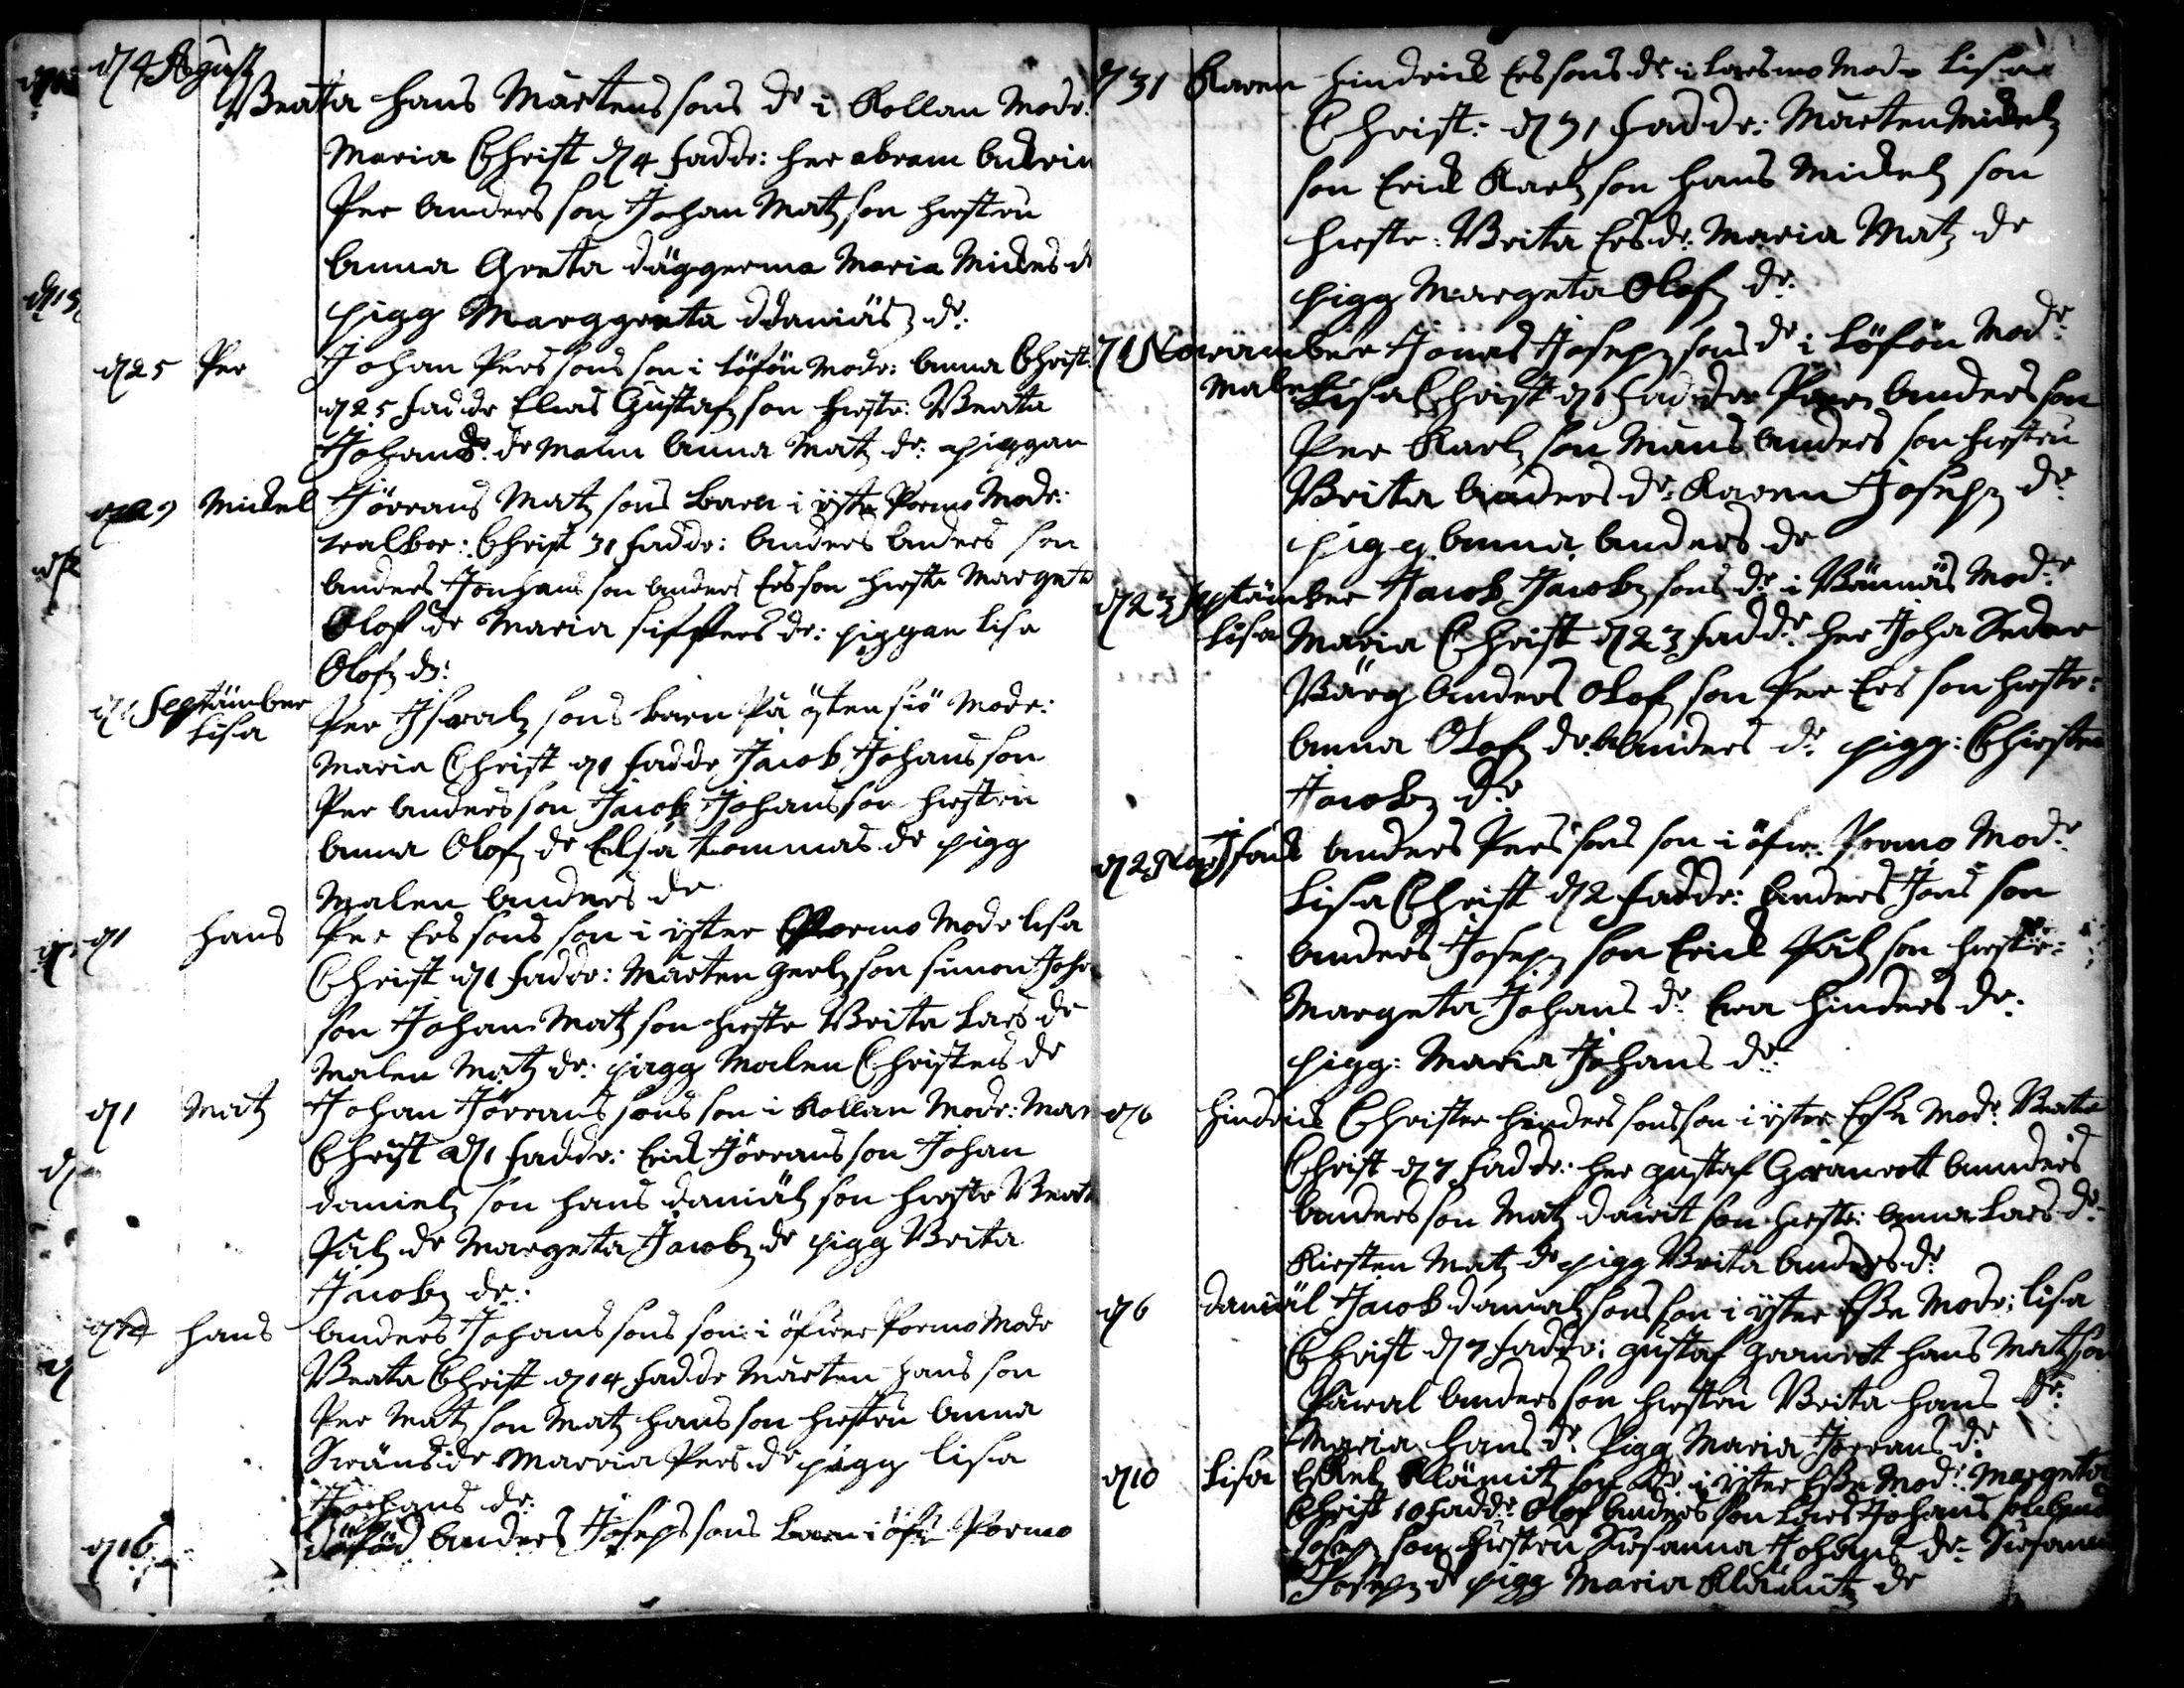 d 4 August
Beata Hans Mårtens sons dr i Kollan Modr:
Maria Christ d 4 Faddr: her abram
Per Anders son Johan Matz son hustru
Anna Greta Maria Mickels d
pigg Marggreta dr:
d 25 Per Johan Pers sons son i Löfön Modr: Anna Christ
d 25 Faddr Elias Gustafz son hustr: Beata
Johans dr Malin Anna Matz dr: piggan
d 29 Mickel Jörrans Matz sons barn i yttr Pormo Modr:
walbor: Christ 31 Faddr: Anders Anders son
Anders Jonhans son Anders Ers son hustr Margreta
Olof dr Maria Siffers dr: piggan Lisa
Olofz dr:
d 1 Septämber
Lisa Per Israelz sons barn På östensiö Modr:
Maria Christ d 1 Faddr Jacob Johans son
Per Anders son Jacob Johans son hustru
Anna Olofz dr Elsa tommas dr pigg
Malen Anders dr
d 1 Hans Per Ers sons son i ytter Pormo Modr Lisa
Christ d 1 Faddr: Mårten son Simon Joha
son Johan Matz son hustr Brita Lars dr
Malen Matz dr: pigg Malen Christers dr
d 1 Matz Johan Jörrans sons son i Kollan Modr: Mar
Christ d 1 Faddr: Erick Jörrans son Johan
danielz son Hans daniälz son hustr Beata
Pålz dr Margreta Jacobz dr pigg Brita
Jacobz dr:
d 14 Hans Anders Johans sons son i öfwer Pormo Modr
Beata Christ d 14 Faddr Mårten Hans son
Per Matz son Matz Hans son hustru Anna
dr Maria Pers dr pigg Lisa
Johans dr:
d 16 Anders Joseps sons barn i öfr Pormo
d 31 Karen Hindrick Ers sons dr i Larsmo Modr Lisa
Christ: d 31 Faddr: Mårten Mickelz
son Erick Karlz son Hans Mickelz son
hustr: Brita Ers dr: Maria Matz dr
pigg Margreta Olofz dr:
d 1 Novämber Jonas Josepz sons dr i Löfön Modr
Malen Lisa Christ d 1 Faddr Anders son
Per Karlz son Måns Anders son hustru
Brita Anders dr: Karen Josepz dr
pigg Anna Anders dr
d 23 Septämber Jacob Jacobz sons dr i Bännäs Modr
Lisa Maria Christ d 23 Faddr her Joha
Bärg Anders Olofz son Per Ers son hustr:
Anna Olofz dr Anders dr pigg: Chirsten
Jacobz dr
d 2 Isack Anders Pers sons son i öfwr Pormo Modr
Lisa Christ d 2 Faddr: Anders Jons son
Anders Josepz son Erick Pålz son hustr:
Margreta Johans dr Ewa Hinders dr:
pigg: Maria Johans dr
d 6 Hindrick Christer Hinders sons son i ytter Esse Modr Beata
Christ d 7 Faddr: her Gustaf Granrott Anders
Anders son Matz dawit son hustr: Anna Lars dr
Kirsten Matz dr pigg Brita Anders dr
d 6 daniäl Jacob danialz sons son i ytter Esse Modr: Lisa
Christ d 7 Faddr: Gustaf Granrott Hans Matz son
Påwal Anders son hustru Brita Hans dr:
Maria Hans dr Pigg Maria Jörrans dr
d 10 Lisa Eskel Klämitz son dr i ytter Esse Modr Margreta
Christ 10 Faddr Olof Anders son Lars Johans son
Josepz son hustru Susanna Johans dr Susanna
Josepz dr pigg Maria Klämitz dr